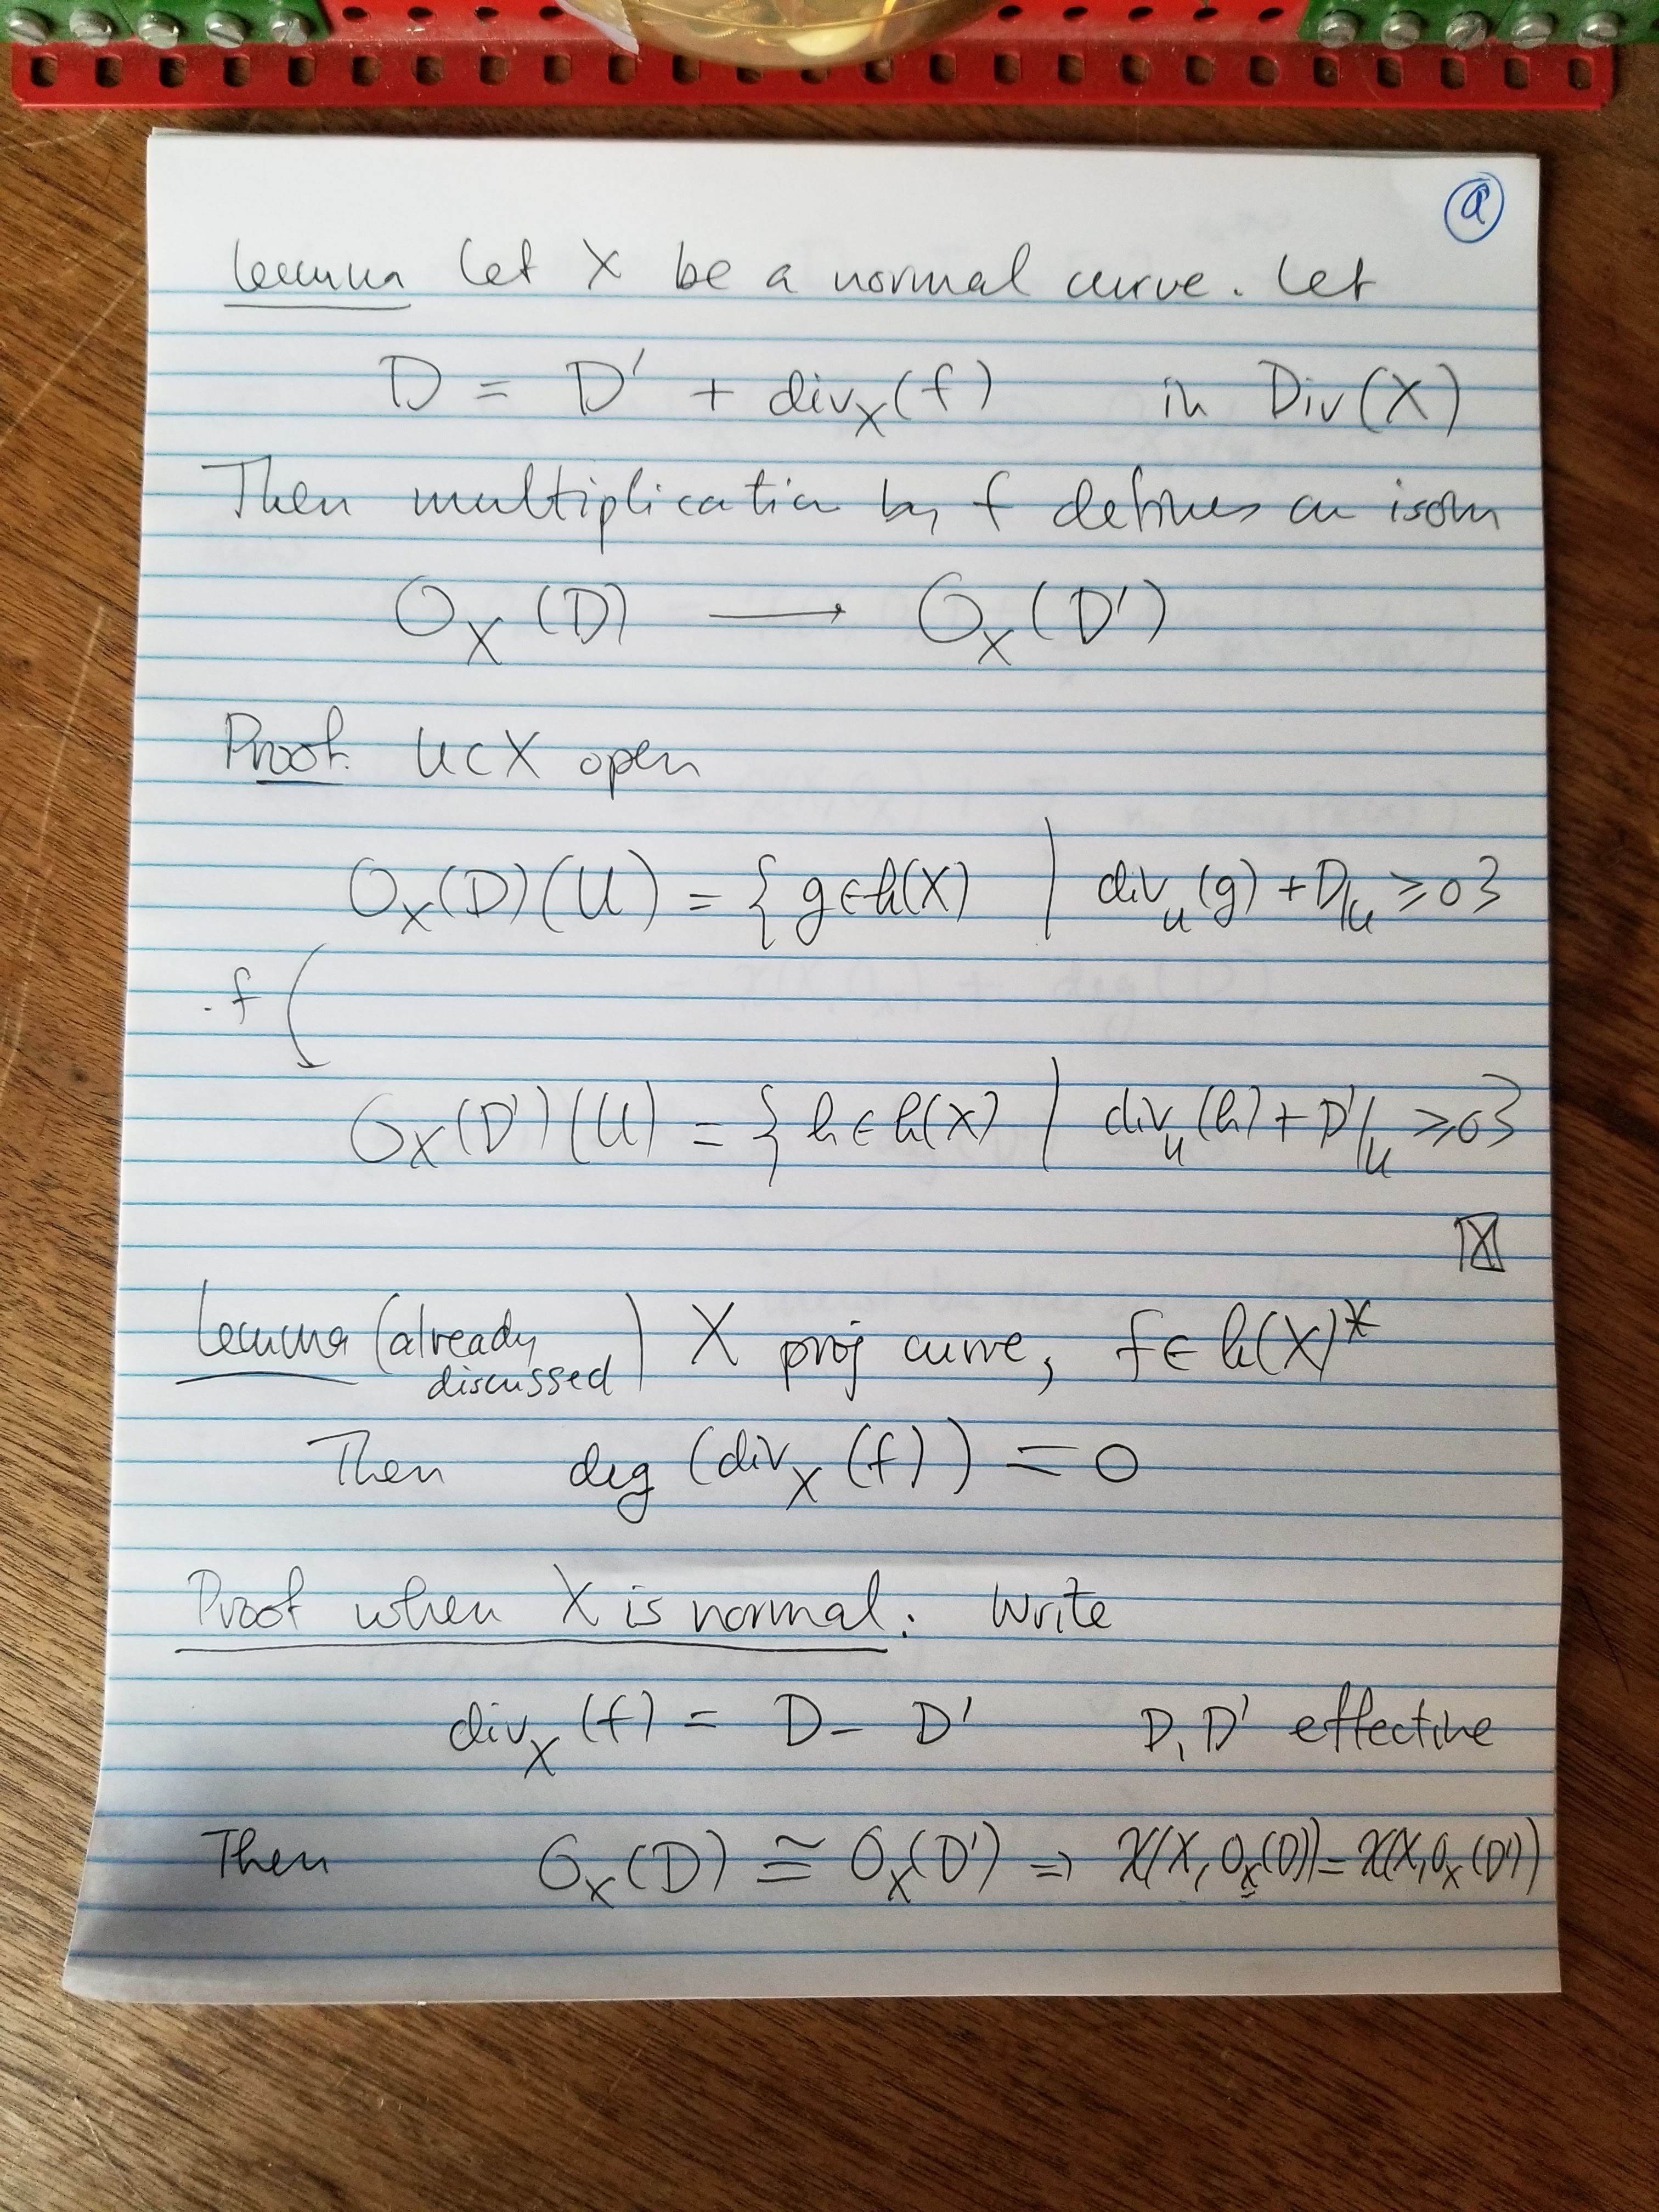 a
Lemma Let X be a normal curve. Let
D = D' + div_X(f) in Div(X)
Then multiplication by f defines an isom
O_X(D) ⟶ O_X(D')
Proof. U⊂X open
O_X(D)(U) = { g∈k(X) | div_U(g) + D|_U ≥ 0 }
·f
O_X(D')(U) = { h∈k(X) | div_U(h) + D'|_U ≥ 0 }
Lemma (already discussed) X proj curve, f∈k(X)*
Then deg (div_X(f)) = 0
Proof when X is normal: Write
div_X(f) = D - D' D, D' effective
Then O_X(D) ≅ O_X(D') ⇒ χ(X, O_X(D)) = χ(X, O_X(D'))